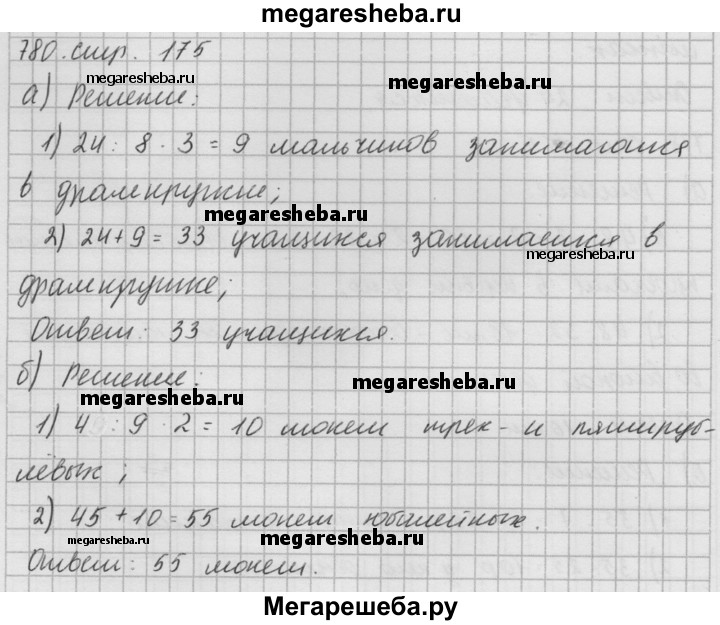 megaresheba.ru
780. стр. 175
megaresheba.ru
megaresheba.ru
а) Решение:
1) 24 : 8 · 3 = 9 мальчиков занимаются
в драмкружке;
megaresheba.ru
2) 24+9 = 33 учащихся занимается в
megaresheba.ru
драмкружке;
Ответ: 33 учащихся.
б) Решение:
megaresheba.ru
megaresheba.ru
1) 4 : 9 · 2 = 10 монет трех- и пятируб-
лёвых;
2) 45 + 10 = 55 монет юбилейных.
megaresheba.ru
megaresheba.ru
Ответ: 55 монет.
Мегарешеба.ру